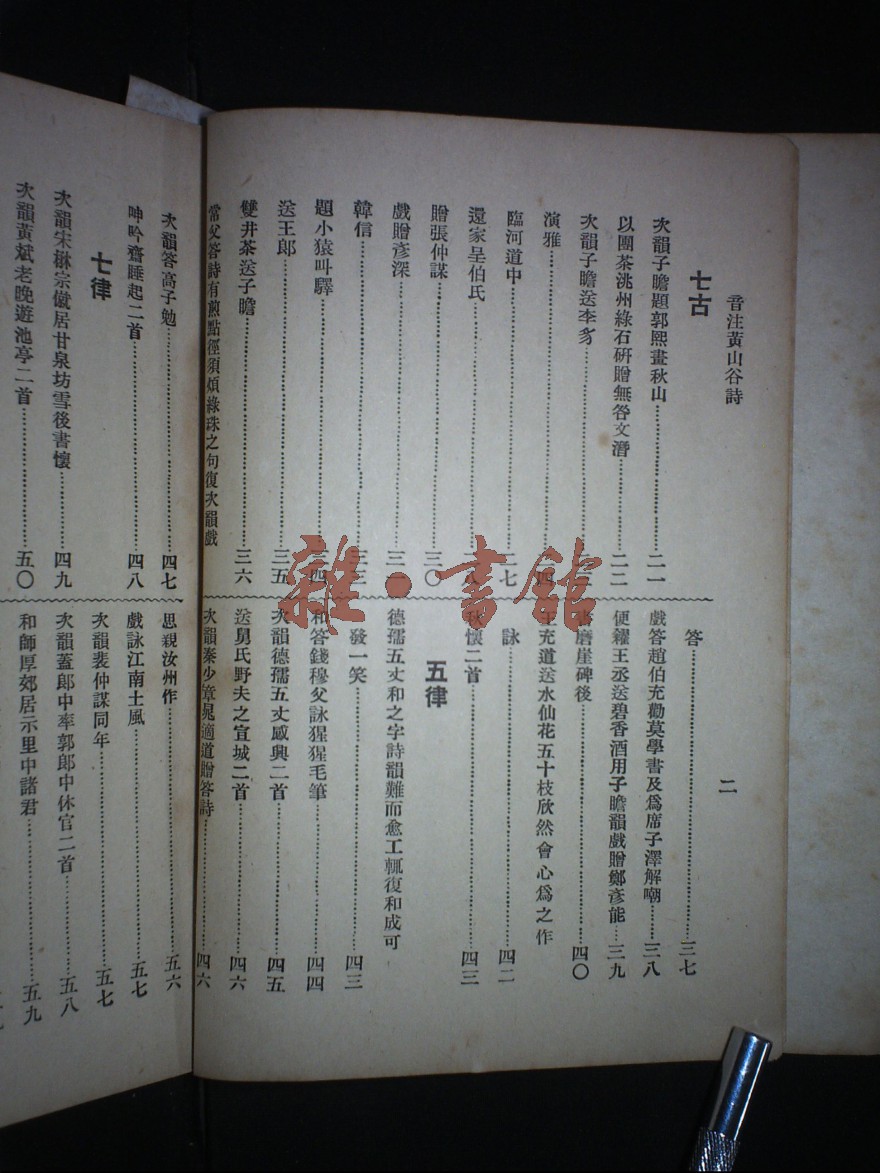 音注黃山谷詩
二
七古
次韻子瞻題郭熙畫秋山……二一
以團茶洮州綠石研贈無咎文潛……二二
次韻子瞻送李豸……二三
演雅……二四
臨河道中……二七
還家呈伯氏……二八
贈張仲謀……三〇
戲贈彥深……三一
韓信……三三
題小猿叫驛……三四
送王郎……三五
雙井茶送子瞻……三六
常父答詩有煎點徑須煩綠珠之句復次韻戲
答……三七
戲答趙伯充勸莫學書及爲席子澤解嘲……三八
便糴王丞送碧香酒用子瞻韻戲贈鄭彥能……三九
書磨崖碑後……四〇
王充道送水仙花五十枝欣然會心爲之作
詠……四二
秋懷二首……四三
五律
德孺五丈和之字詩韻難而愈工輒復和成可
發一笑……四三
和答錢穆父詠猩猩毛筆……四四
次韻德孺五丈感興二首……四五
送舅氏野夫之宣城二首……四六
次韻秦少章晁適道贈答詩……四六
次韻答高子勉……四七
呻吟齋睡起二首……四八
七律
次韻宋楙宗僦居甘泉坊雪後書懷……四九
次韻黃斌老晚遊池亭二首……五〇
思親汝州作……五六
戲詠江南土風……五七
次韻裴仲謀同年……五七
次韻蓋郎中率郭郎中休官二首……五八
和師厚郊居示里中諸君……五九
雜·書館